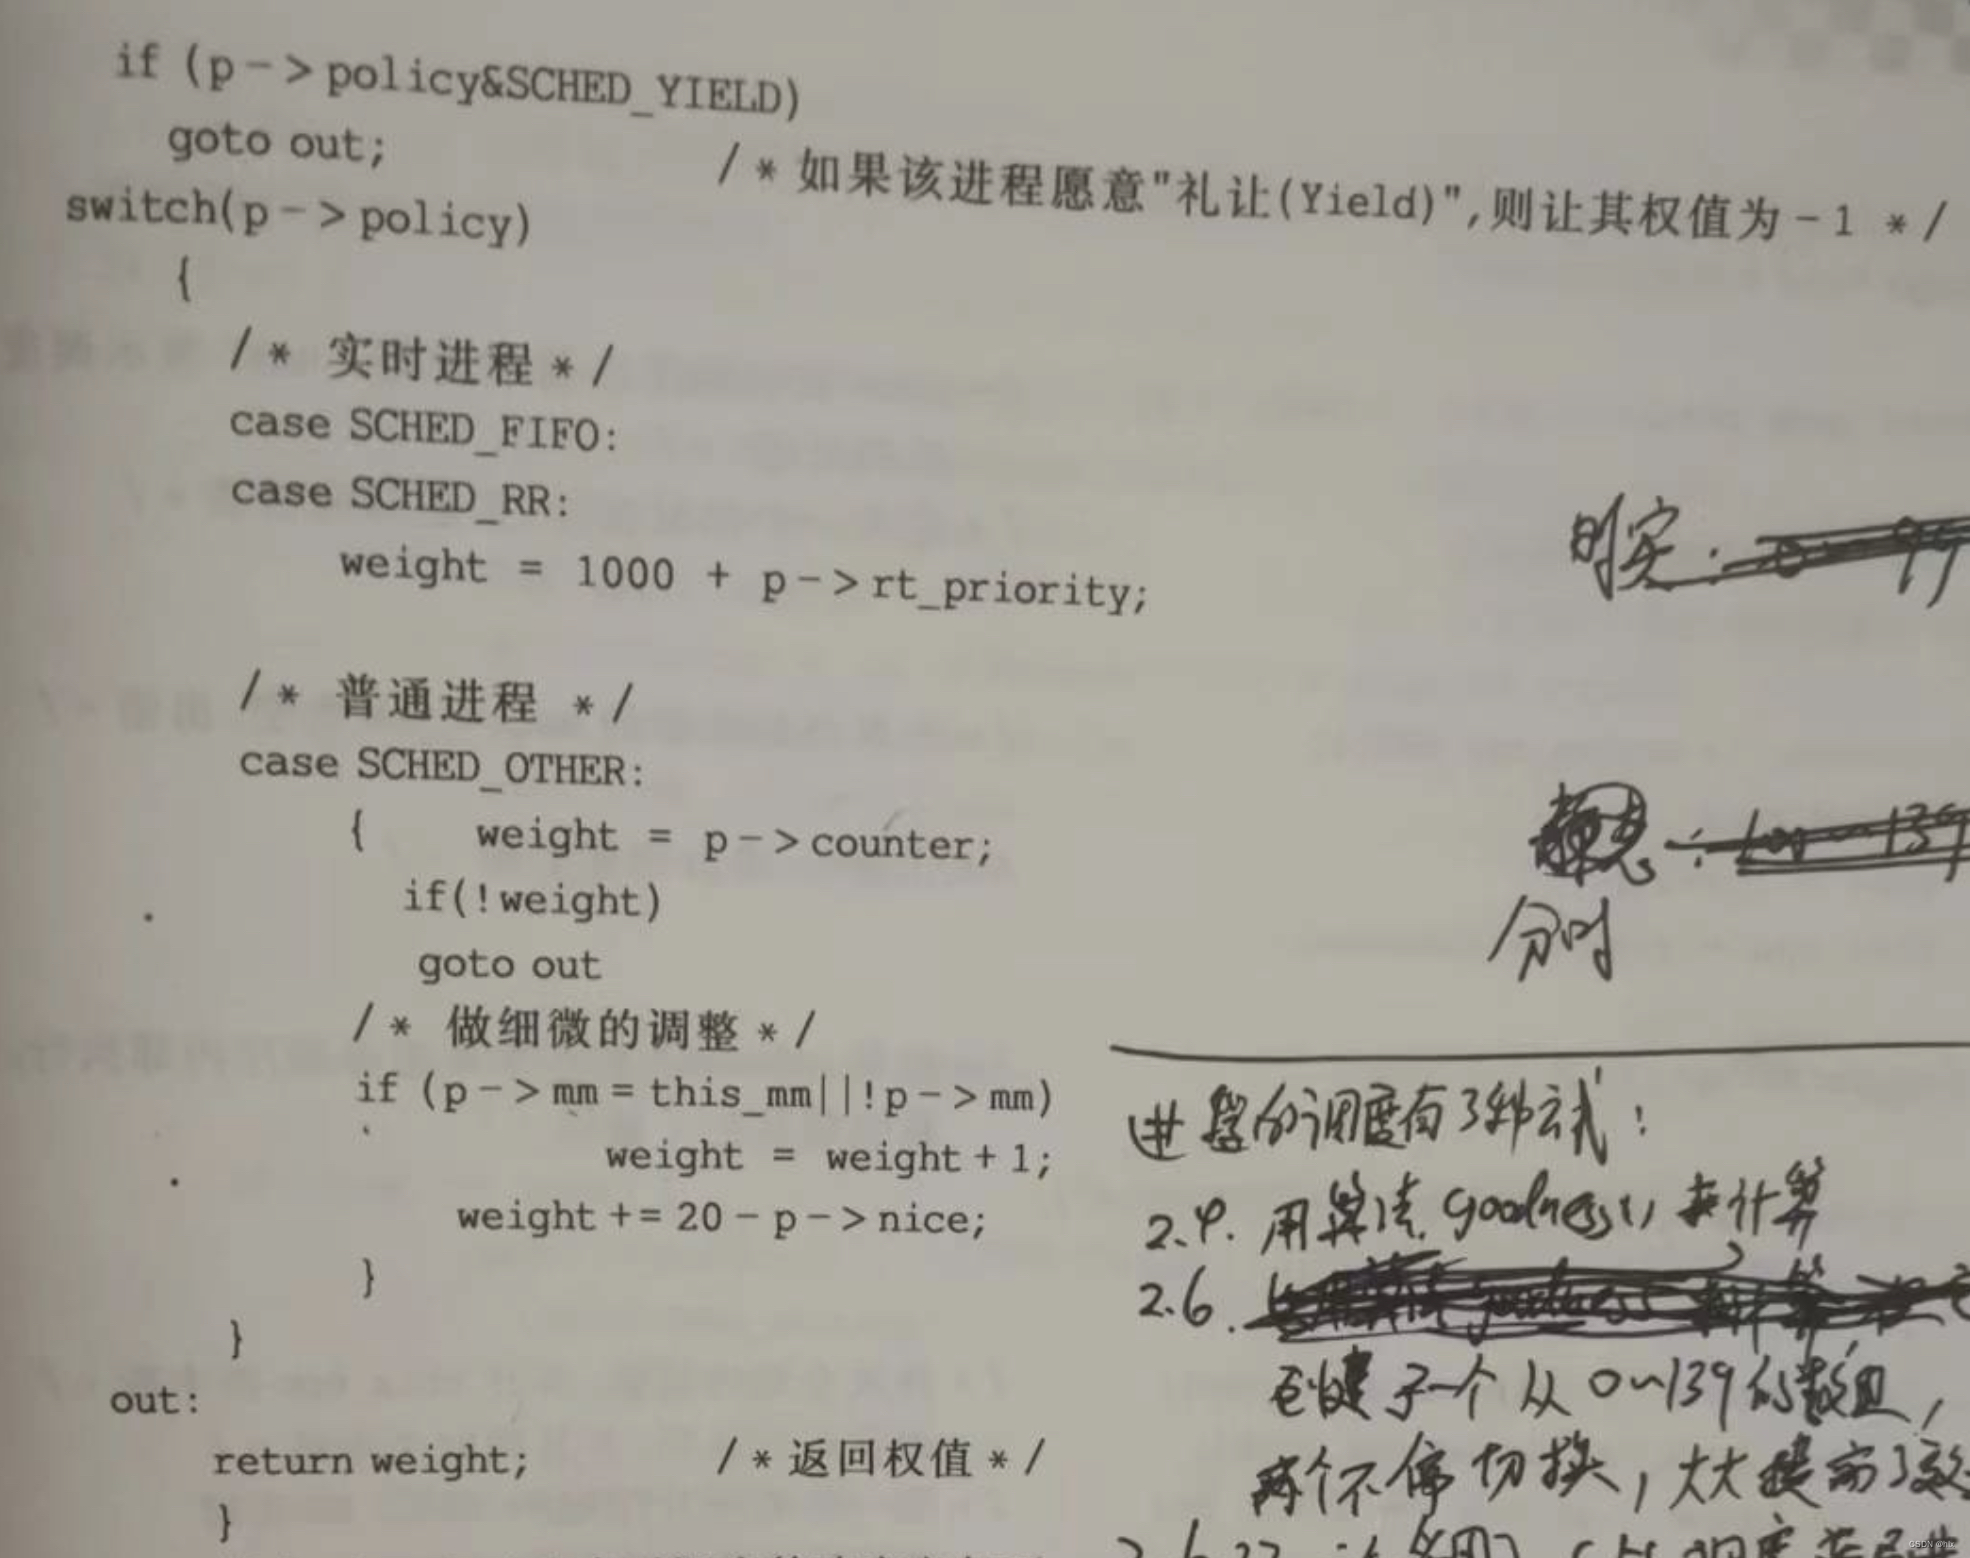 if (p->policy&SCHED_YIELD)
goto out; /*如果该进程愿意"礼让(Yield)",则让其权值为-1 */
switch(p->policy)
{
/* 实时进程*/
case SCHED_FIFO:
case SCHED_RR:
weight = 1000 + p->rt_priority;
/* 普通进程 */
case SCHED_OTHER:
{ weight = p->counter;
if(!weight)
goto out
/* 做细微的调整*/
if (p->mm=this_mm||!p->mm)
weight = weight+1;
weight+=20-p->nice;
}
}
out:
return weight; /*返回权值*/
}
分时
进程的调度有了种方式:
2.4. 用算法 goodness() 来计算
2.6.
创建了一个从0~139的数组,
两个不停切换,大大提高了效
CSDN @htx